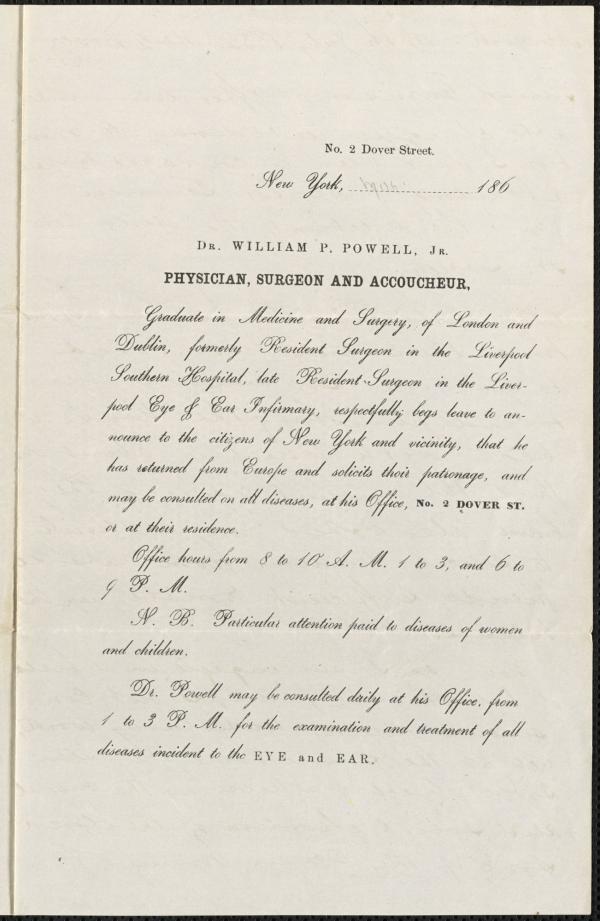 No. 2 Dover Street.
New York, 186
Dr. WILLIAM P. POWELL, Jr.
PHYSICIAN, SURGEON AND ACCOUCHEUR,
Graduate in Medicine and Surgery, of London and
Dublin, formerly Resident Surgeon in the Liverpool
Southern Hospital, late Resident Surgeon in the Liver-
pool Eye & Ear Infirmary, respectfully begs leave to an-
nounce to the citizens of New York and vicinity, that he
has returned from Europe and solicits their patronage, and
may be consulted on all diseases, at his Office, No. 2 DOVER ST.
or at their residence.
Office hours from 8 to 10 A. M. 1 to 3, and 6 to
9 P. M.
N. B. Particular attention paid to diseases of women
and children.
Dr. Powell may be consulted daily at his Office, from
1 to 3 P. M. for the examination and treatment of all
diseases incident to the EYE and EAR.